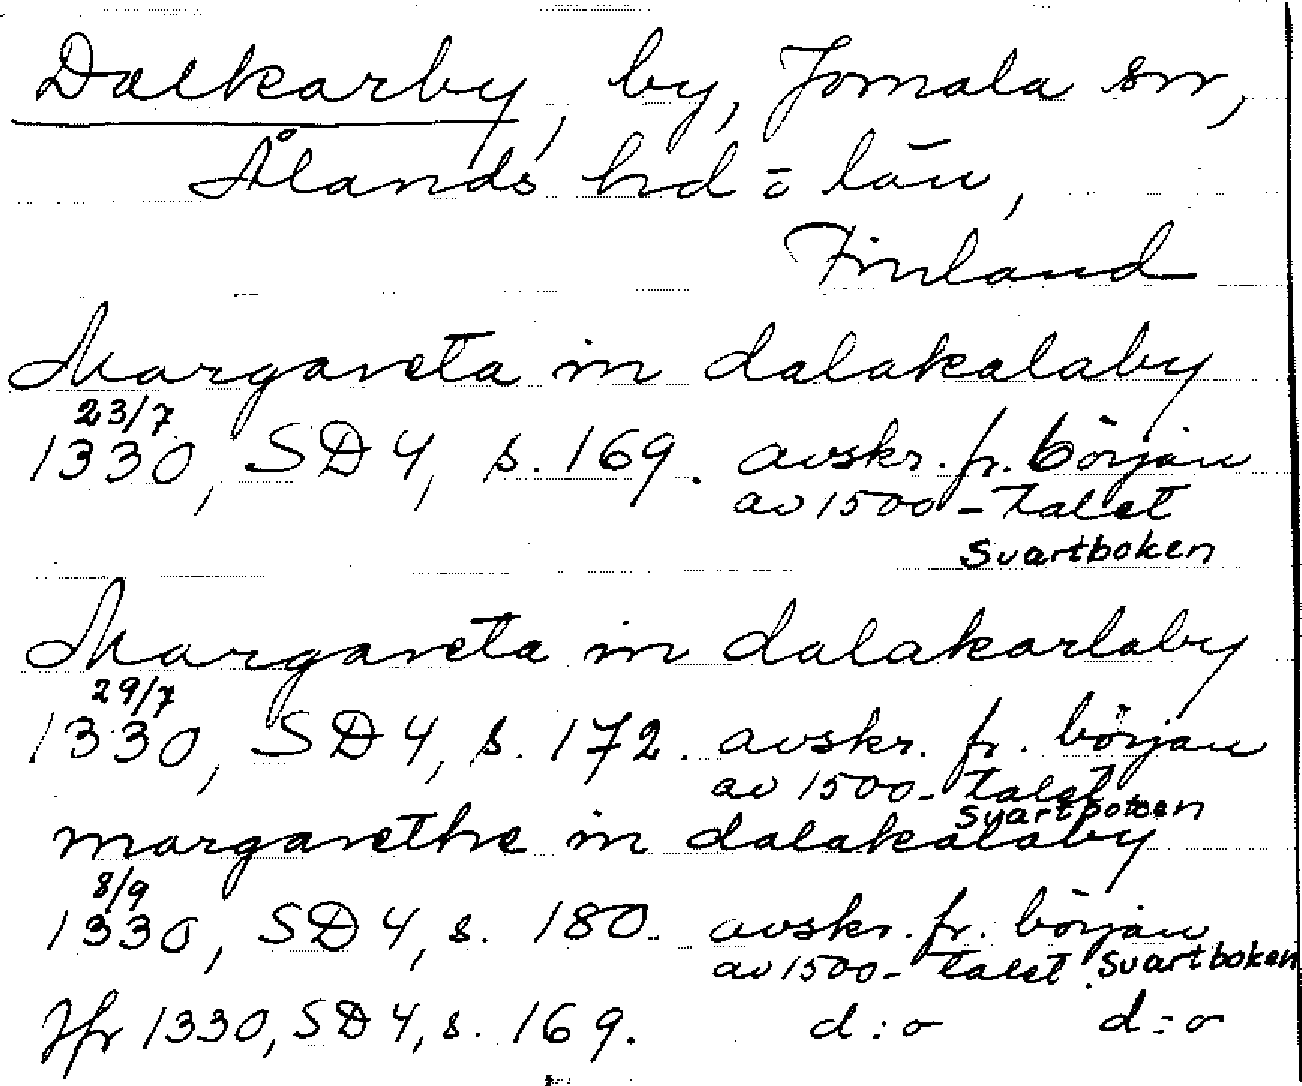 Dalkarby, by, Jomala sn,
Ålands hd o län,
Finland
Margareta in dalakalaby
23/7
1330, SD 4, s. 169. avskr. fr. början
av 1500-talet
Svartboken
Margareta in dalakarlaby
29/7
1330, SD 4, s. 172. avskr. fr. början
av 1500-talet
Svartboken
margarethe in dalakalaby
8/9
1330, SD 4, s. 180. avskr. fr. början
av 1500-talet. Svartboken
Jfr 1330, SD 4, s. 169. d:o d:o